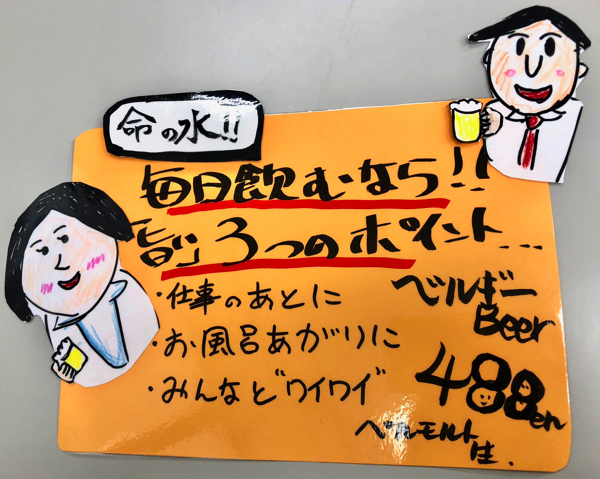 命の水!!
毎日飲むなら!!
「旨」3つのポイント...
・仕事のあとに
・お風呂あがりに
・みんなとﾞワイワイﾞ
ベルギー
Beer
488en
ベルモルト
生.